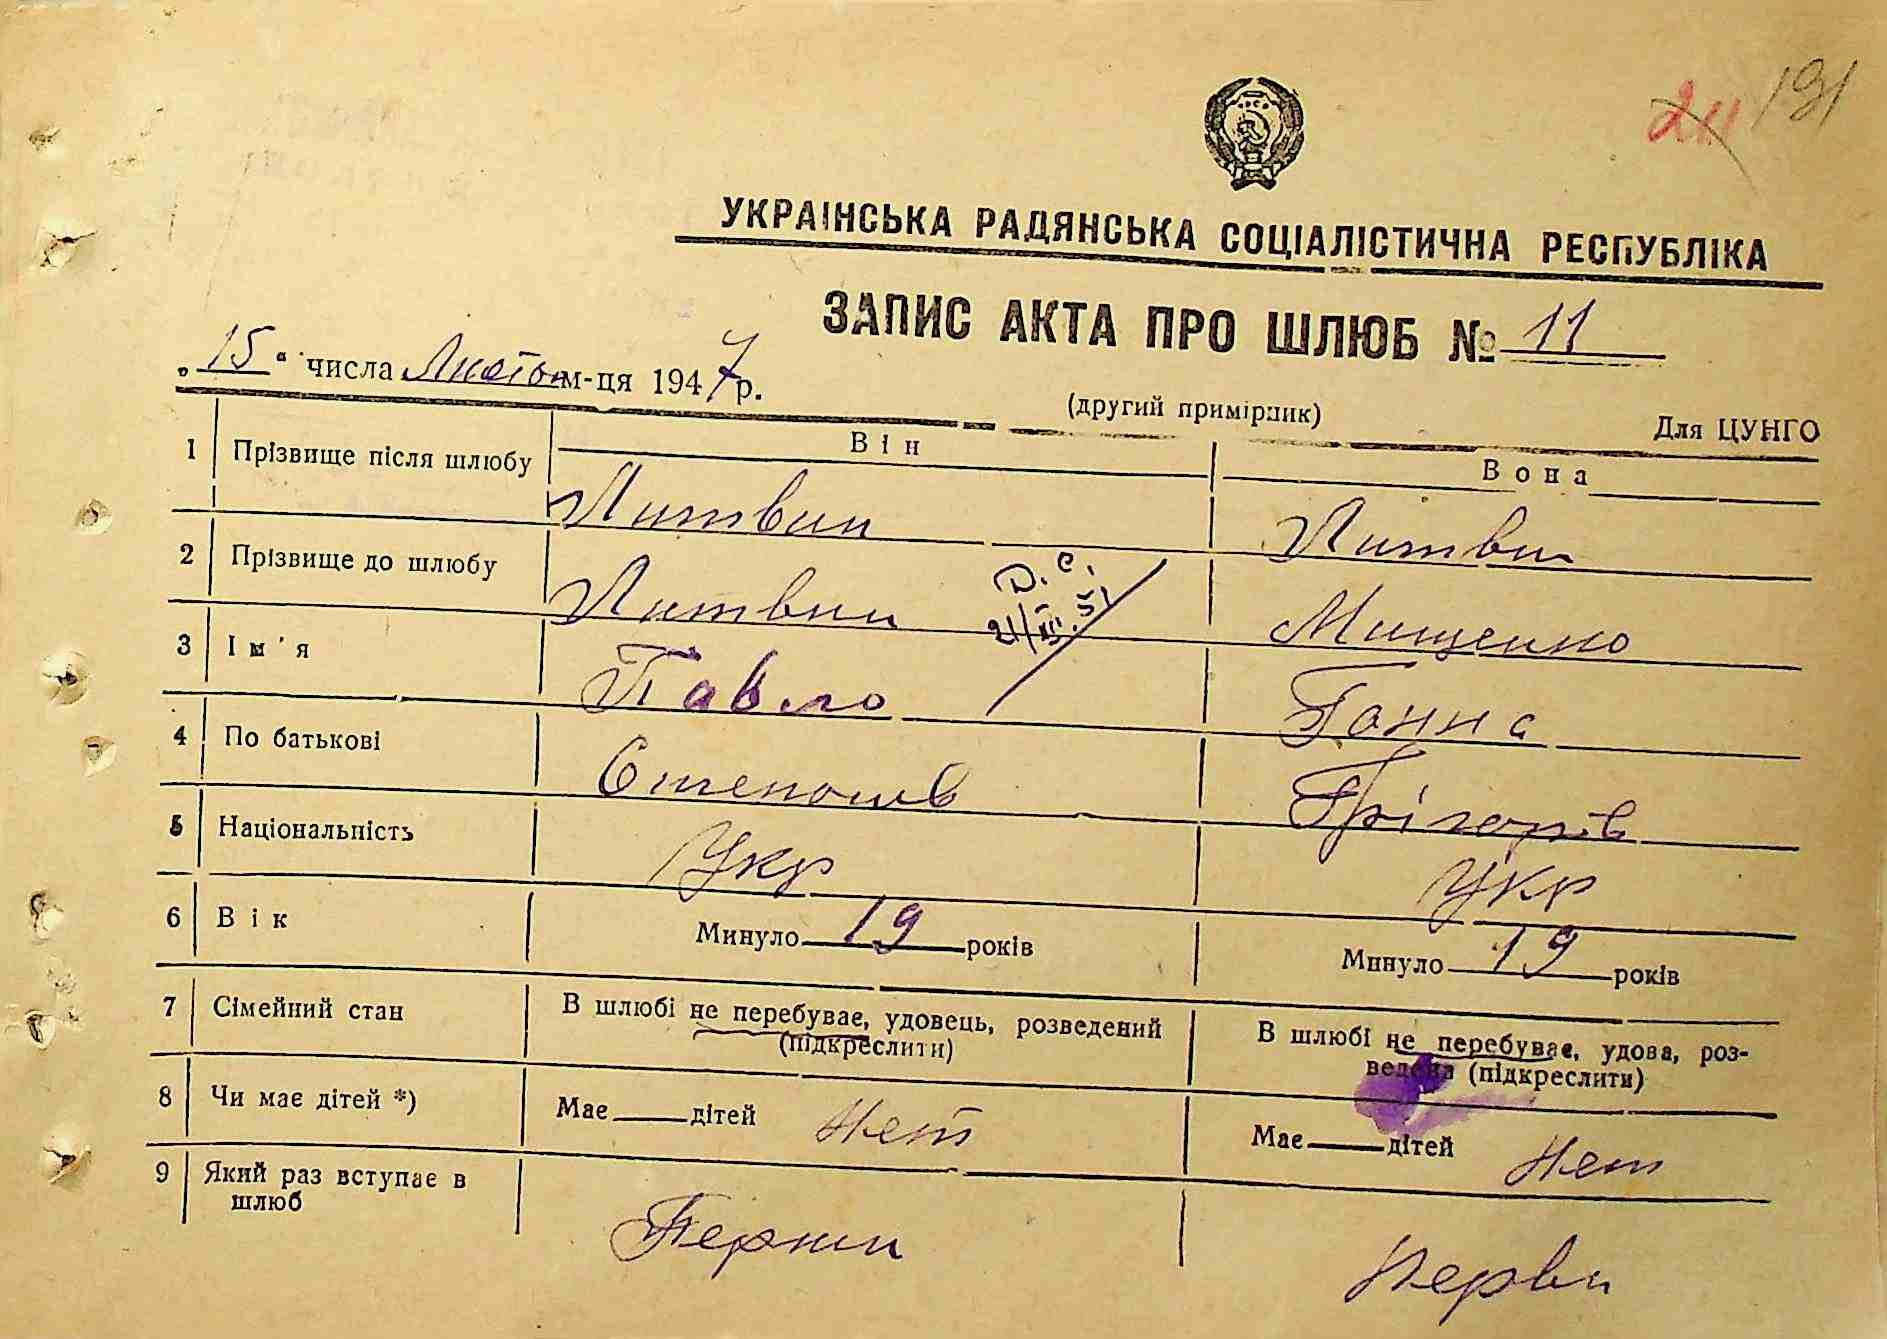 211 191
УКРАЇНСЬКА РАДЯНСЬКА СОЦІАЛІСТИЧНА РЕСПУБЛІКА
ЗАПИС АКТА ПРО ШЛЮБ № 11
„15“ числа Лютого м-ця 1947 р.
(другий примірник) Для ЦУНГО
Він Вона
1 Прізвище після шлюбу Литвин Литвин
2 Прізвище до шлюбу Литвин Мищенко
Д. С.
21/III.51
3 Ім'я Павло Ганна
4 По батькові Степанов Грігорів
5 Національність Укр Укр
6 Вік Минуло 19 років Минуло 19 років
7 Сімейний стан В шлюбі не перебуває, удовець, розведений (підкреслити) В шлюбі не перебуває, удова, розведена (підкреслити)
8 Чи має дітей *) Має дітей Нет Має дітей Нет
9 Який раз вступає в шлюб Перши Перви